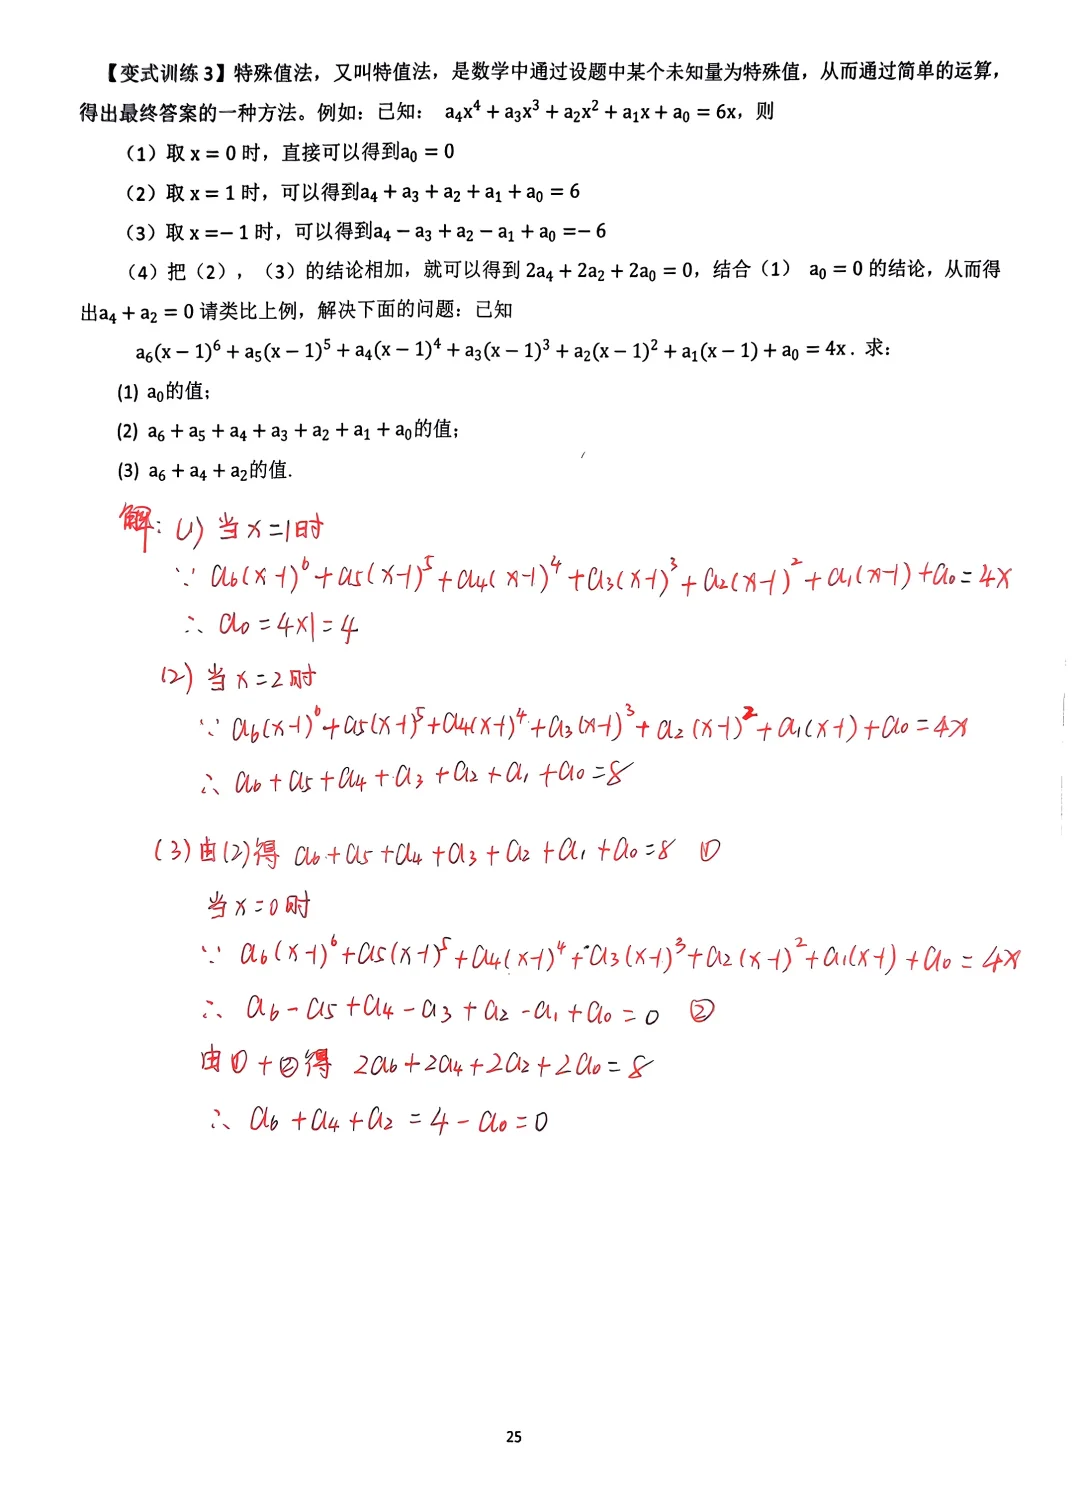 【变式训练 3】特殊值法，又叫特值法，是数学中通过设题中某个未知量为特殊值，从而通过简单的运算，
得出最终答案的一种方法。例如：已知： a₄x⁴ + a₃x³ + a₂x² + a₁x + a₀ = 6x，则
（1）取 x = 0 时，直接可以得到a₀ = 0
（2）取 x = 1 时，可以得到a₄ + a₃ + a₂ + a₁ + a₀ = 6
（3）取 x =− 1 时，可以得到a₄ − a₃ + a₂ − a₁ + a₀ =− 6
（4）把（2），（3）的结论相加，就可以得到 2a₄ + 2a₂ + 2a₀ = 0，结合（1） a₀ = 0 的结论，从而得
出a₄ + a₂ = 0 请类比上例，解决下面的问题：已知
a₆(x − 1)⁶ + a₅(x − 1)⁵ + a₄(x − 1)⁴ + a₃(x − 1)³ + a₂(x − 1)² + a₁(x − 1) + a₀ = 4x . 求：
(1) a₀的值；
(2) a₆ + a₅ + a₄ + a₃ + a₂ + a₁ + a₀的值；
(3) a₆ + a₄ + a₂的值.
解：(1) 当 x=1时
∵ a₆(x-1)⁶+a₅(x-1)⁵+a₄(x-1)⁴+a₃(x-1)³+a₂(x-1)²+a₁(x-1)+a₀=4x
∴ a₀=4×1=4
(2) 当 x=2时
∵ a₆(x-1)⁶+a₅(x-1)⁵+a₄(x-1)⁴+a₃(x-1)³+a₂(x-1)²+a₁(x-1)+a₀=4x
∴ a₆+a₅+a₄+a₃+a₂+a₁+a₀=8
(3) 由(2)得 a₆+a₅+a₄+a₃+a₂+a₁+a₀=8 ①
当 x=0时
∵ a₆(x-1)⁶+a₅(x-1)⁵+a₄(x-1)⁴+a₃(x-1)³+a₂(x-1)²+a₁(x-1)+a₀=4x
∴ a₆-a₅+a₄-a₃+a₂-a₁+a₀=0 ②
由①+②得 2a₆+2a₄+2a₂+2a₀=8
∴ a₆+a₄+a₂=4-a₀=0
25